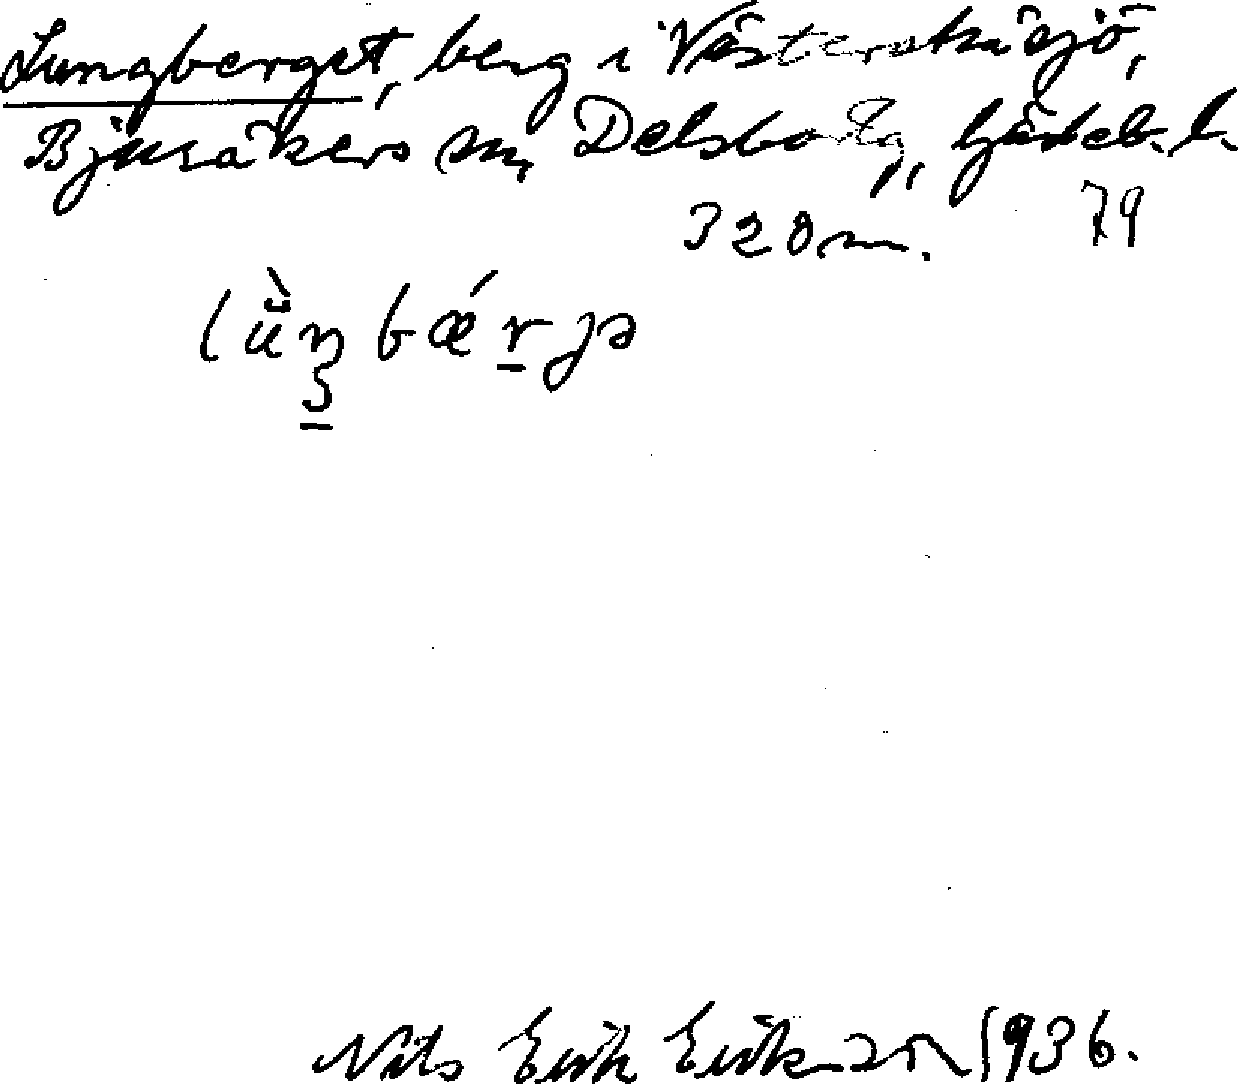 Lungberget, berg i Västersträsjö,
Bjuråkers sn, Delsbo tg, Gävleb. l.
320 m. 79
lùŋbǽrjə
Nils Erik Erikzon 1936.